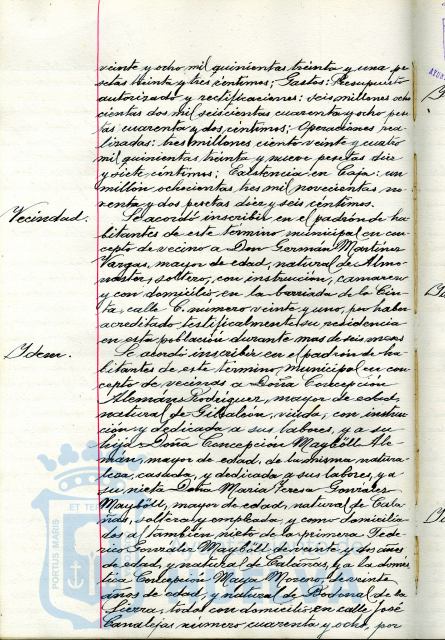 veinte y ocho mil quinientas treinta y una pe
setas treinta y tres céntimos; Gastos: Presupuesto
autorizado y rectificaciones: seis millones ocho
cientas dos mil seiscientas cuarenta y ocho pese
tas cuarenta y dos céntimos; Operaciones rea
lizadas: tres millones ciento veinte y cuatro
mil quinientas treinta y nueve pesetas diez
y siete céntimos; Existencia en Caja: un
millón ochocientas tres mil novecientas no
venta y dos pesetas diez y seis céntimos.
Vecindad. Se acordó inscribir en el padrón de ha
bitantes de este término municipal en con
cepto de vecino a Don Germán Martínez
Vargas, mayor de edad, natural de Almo
naster, soltero, con instrucción, camarero
y con domicilio en la barriada de la Cin
ta, calle C. número veinte y uno, por haber
acreditado testificalmente su residencia
en esta población durante mas de seis meses
Idem. Se acordó inscribir en el padrón de ha
bitantes de este término municipal en con
cepto de vecinas a Doña Concepción
Alemán Rodríguez, mayor de edad,
natural de Gibraleón, viuda, con instruc
ción y dedicada a sus labores, y a su
hija Doña Concepción Mayböll Ale
mán, mayor de edad, de la misma natura
leza, casada, y dedicada a sus labores, y a
su nieta Doña Maria Teresa Gonzalez
Mayböll, mayor de edad, natural de Cala
ñas, soltera y empleada, y como domicilia
dos a también nieto de la primera Fede
rico Gonzalez Mayböll de veinte y dos años
de edad, y natural de Calañas, y a la domés
tica Concepción Maya Moreno, de veinte
años de edad, y natural de Bodonal de la
Sierra, todos con domicilio en calle José
Canalejas número cuarenta y ocho, por
PORTUS MARIS
ET TER